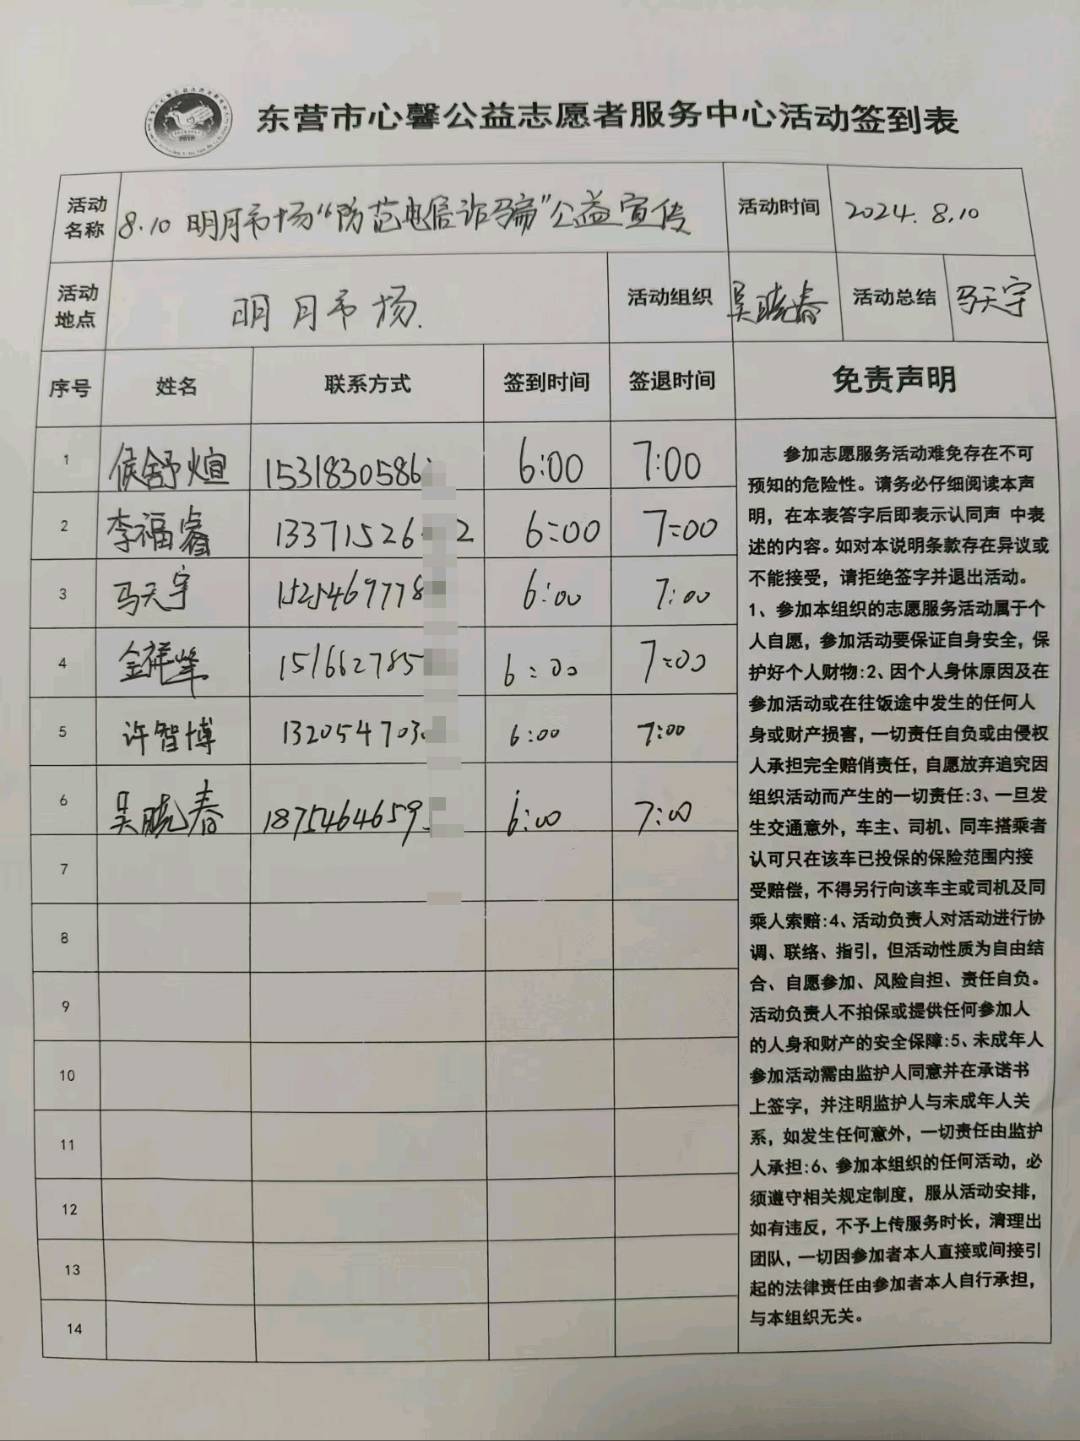 东营市心馨公益志愿者服务中心活动签到表
活动名称 8.10 明月市场“防范电信诈骗”公益宣传 活动时间 2024.8.10
活动地点 明月市场. 活动组织 吴晓春 活动总结 马天宇
序号 姓名 联系方式 签到时间 签退时间 免责声明
1 侯舒煊 1531830586 6:00 7:00
2 李福睿 13371526 2 6:00 7:00
3 马天宇 1525469778 6:00 7:00
4 金祥峰 151662785 6:00 7:00
5 许智博 132054703 6:00 7:00
6 吴晓春 1875464659 6:00 7:00
7
8
9
10
11
12
13
14
参加志愿服务活动难免存在不可
预知的危险性。请务必仔细阅读本声
明，在本表答字后即表示认同声 中表
述的内容。如对本说明条款存在异议或
不能接受，请拒绝签字并退出活动。
1、参加本组织的志愿服务活动属于个
人自愿，参加活动要保证自身安全，保
护好个人财物:2、因个人身休原因及在
参加活动或在往饭途中发生的任何人
身或财产损害，一切责任自负或由侵权
人承担完全赔俏责任，自愿放弃追究因
组织活动而产生的一切责任:3、一旦发
生交通意外，车主、司机、同车搭乘者
认可只在该车已投保的保险范围内接
受赔偿，不得另行向该车主或司机及同
乘人索赔:4、活动负责人对活动进行协
调、联络、指引，但活动性质为自由结
合、自愿参加、风险自担、责任自负。
活动负责人不拍保或提供任何参加人
的人身和财产的安全保障:5、未成年人
参加活动需由监护人同意并在承诺书
上签字，并注明监护人与未成年人关
系，如发生任何意外，一切责任由监护
人承担:6、参加本组织的任何活动，必
须遵守相关规定制度，服从活动安排，
如有违反，不予上传服务时长，清理出
团队，一切因参加者本人直接或间接引
起的法律责任由参加者本人自行承担，
与本组织无关。